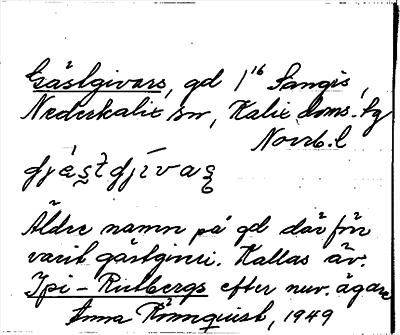 Gästgivars, gd 1¹⁶ Sangis,
Nederkalix sn, Kalix doms. tg
Norrb. l
Äldre namn på gd där för
varit gästgiveri. Kallas äv.
Ipi-Rutbergs efter nuv. ägare
Anna Rönnquist, 1949